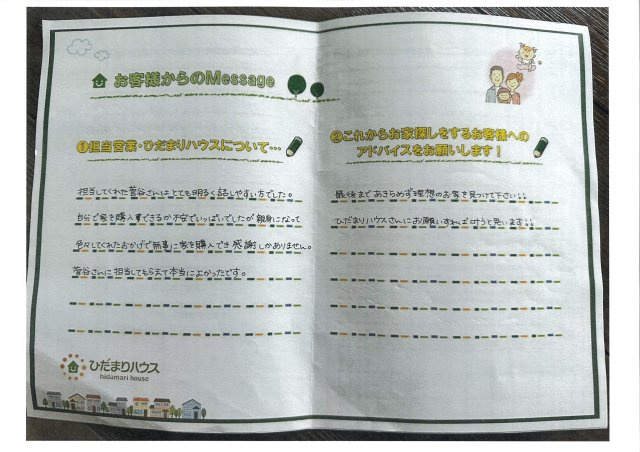 お客様からのMessage
①担当営業・ひだまりハウスについて…
担当してくれた菅谷さんはとても明るく話しやすい方でした。
自分で家を購入事できるか不安でいっぱいでしたが親身になって
色々してくれたおかげで無事に家を購入でき感謝しかありません。
菅谷さんに担当してもらえて本当によかったです。
ひだまりハウス
hidamari house
②これからお家探しをするお客様への
アドバイスをお願いします!
最後まであきらめず理想のお家を見つけて下さい!!
ひだまりハウスさんにお願いすれば叶うと思います!!